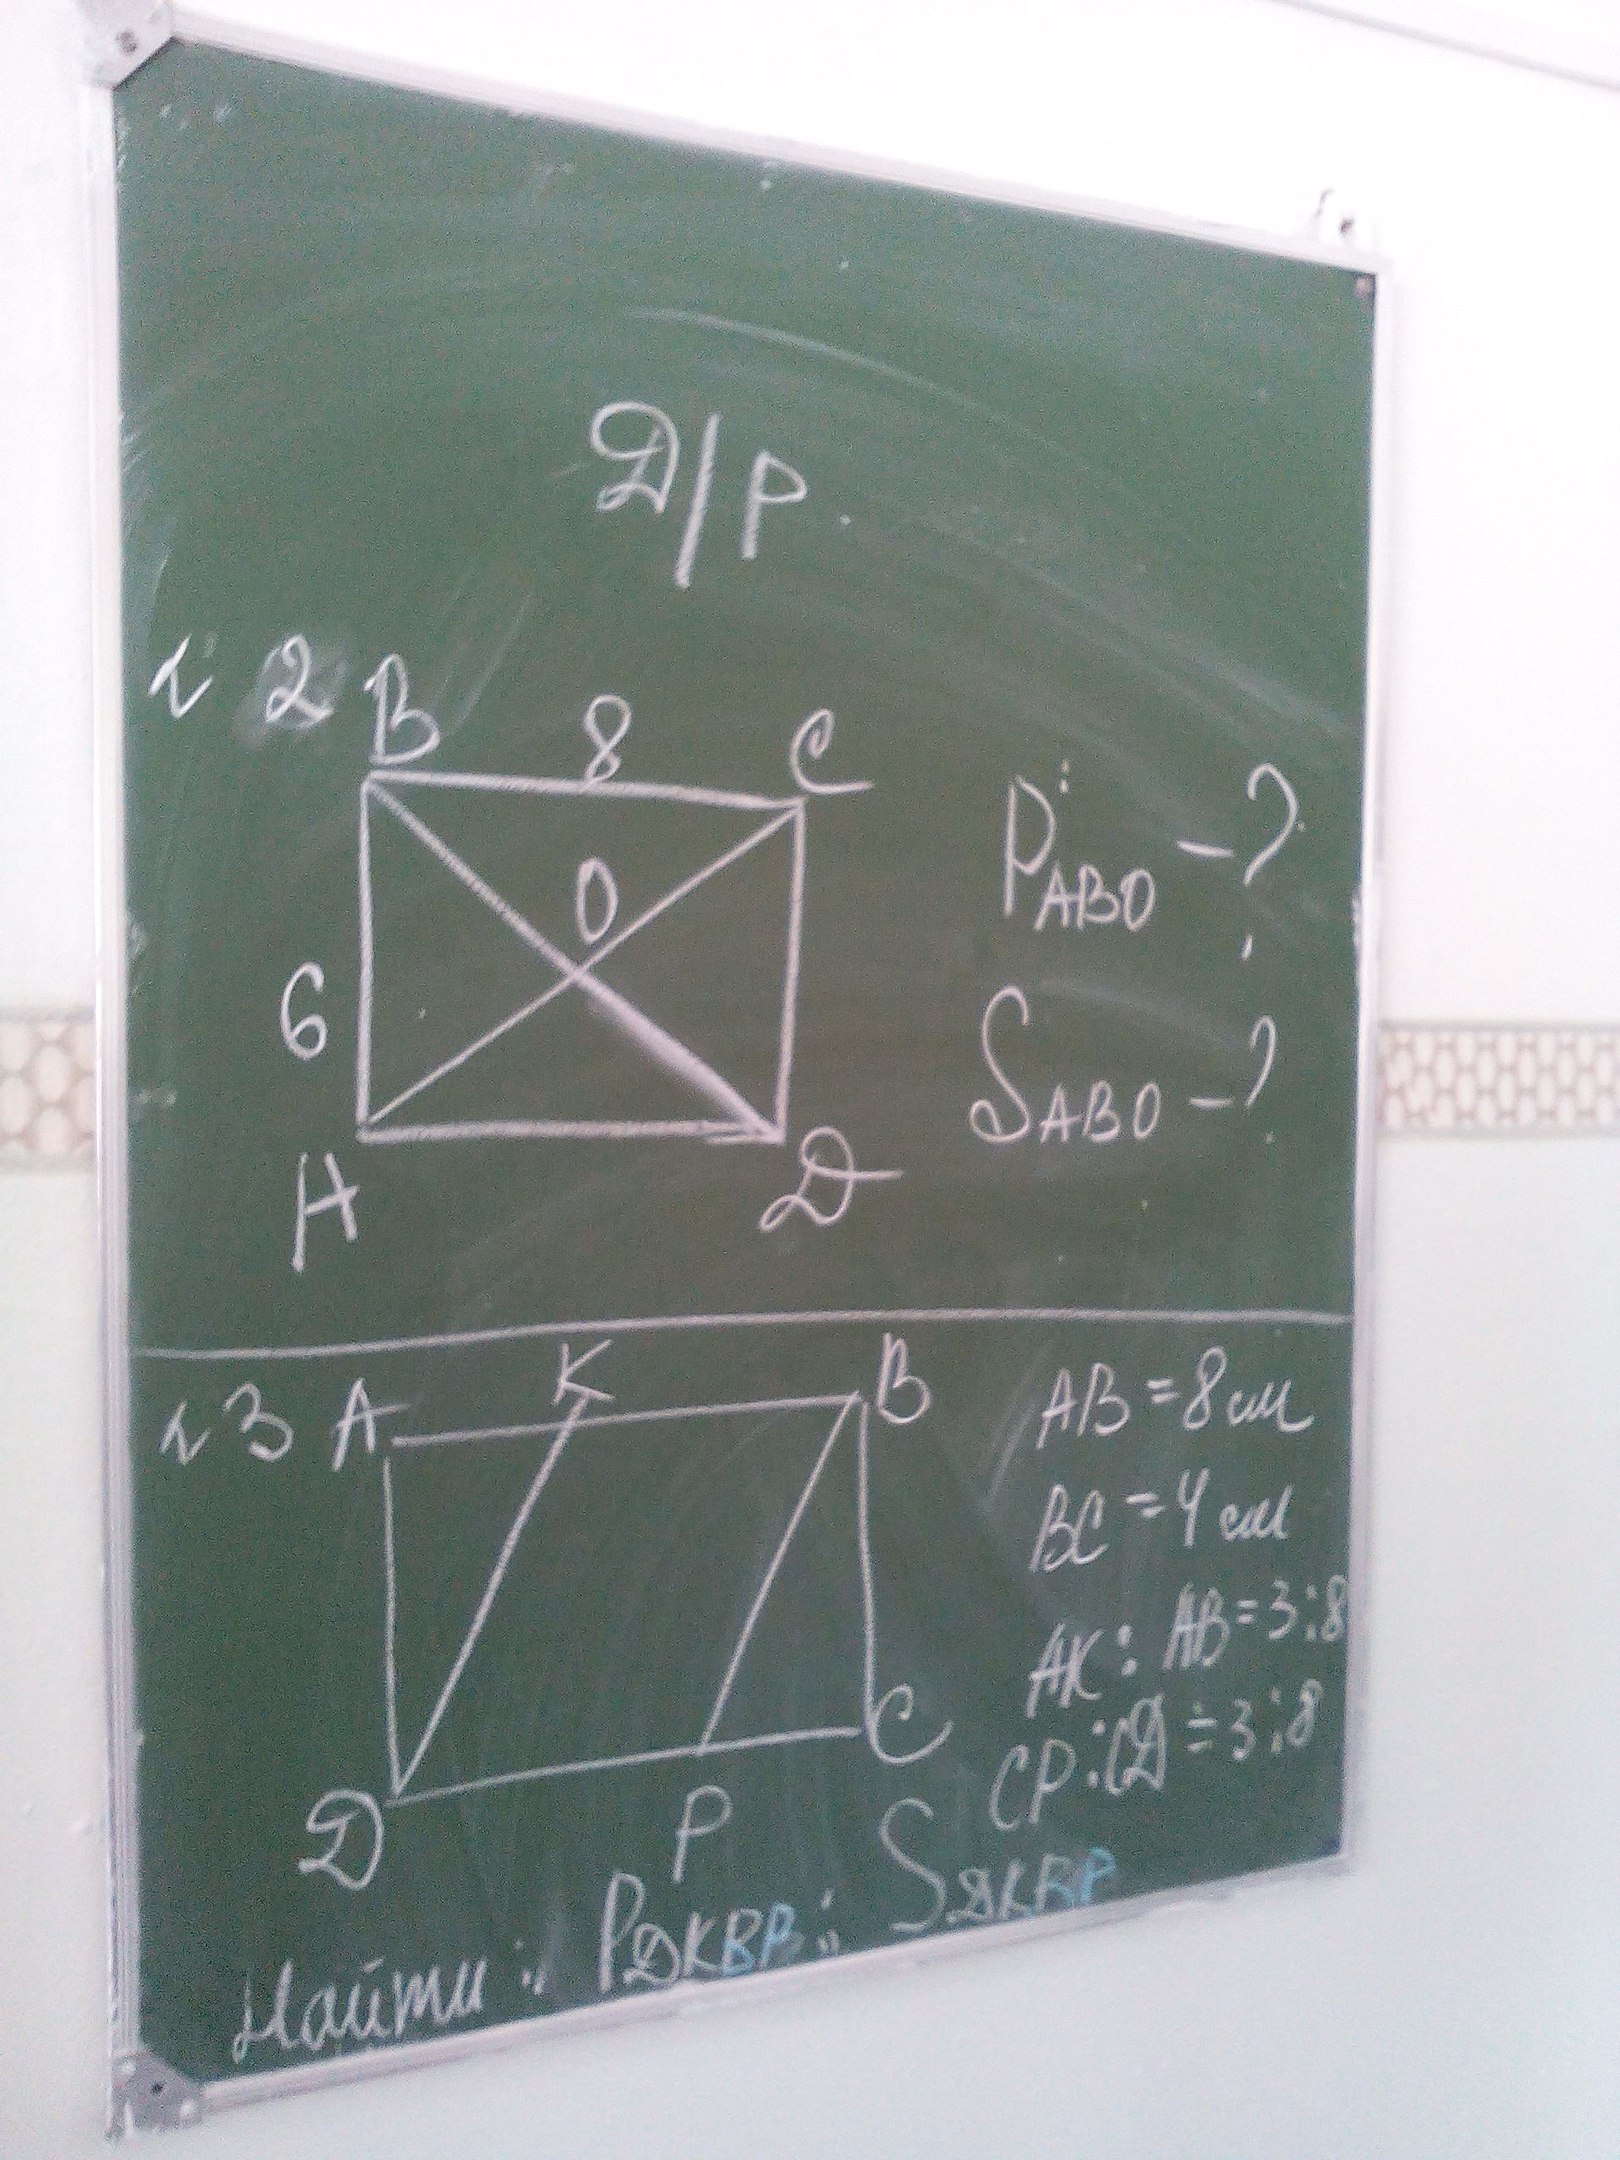 Д/Р
№ 2
B 8 C
O
6
A D
P ABO - ?
S ABO - ?
№ 3
A K B
D P C
AB = 8 см
BC = 4 см
AK : AB = 3 : 8
CP : CD = 3 : 8
Найти : P DKBP ; S DKBP